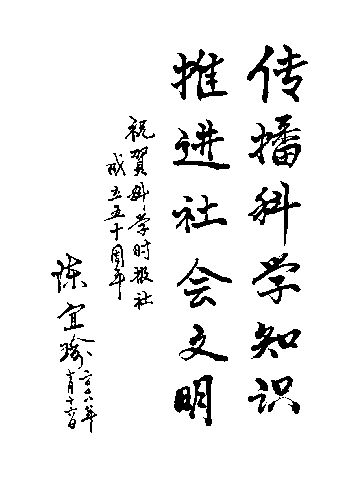 传播科学知识
推进社会文明
祝賀科学时报社
成立五十周年
陈宜瑜